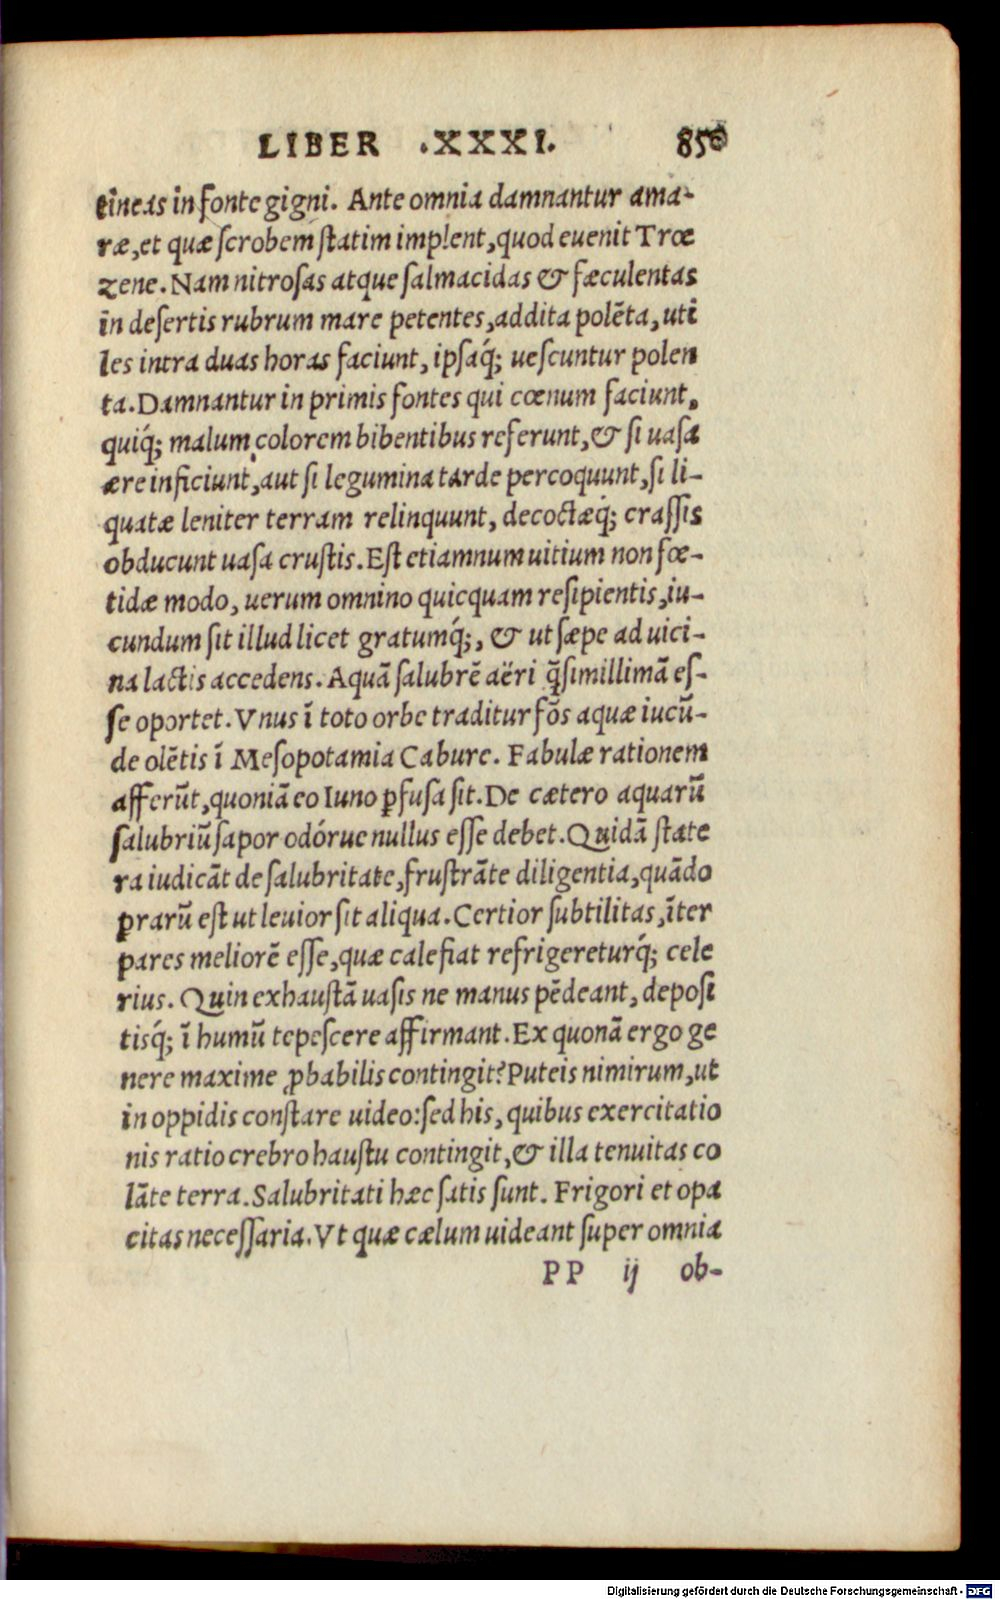 LIBER .XXXI. 850
tineas in fonte gigni. Ante omnia damnantur ama-
ræ,et quæ ſcrobem ſtatim implent,quod euenit Trœ
zene. Nam nitroſas atque ſalmacidas & fæculentas
in deſertis rubrum mare petentes,addita polēta, uti
les intra duas horas faciunt, ipſaq́; ueſcuntur polen
ta. Damnantur in primis fontes qui cœnum faciunt,
quiq́; malum colorem bibentibus referunt,& ſi uaſa
ære inficiunt,aut ſi legumina tarde percoquunt,ſi li-
quatæ leniter terram relinquunt, decoctæq́; craſſis
obducunt uaſa cruſtis. Eſt etiamnum uitium non fœ-
tidæ modo, uerum omnino quicquam reſipientis,iu-
cundum ſit illud licet gratumq́;, & ut ſæpe ad uici-
na lactis accedens. Aquā ſalubrē aëri q̃ſimillimā eſ-
ſe oportet. Vnus ī toto orbe traditur fōs aquæ iucū-
de olētis ī Meſopotamia Cabure. Fabulæ rationem
afferūt,quoniā eo Iuno ꝑfuſa ſit. De cætero aquarū
ſalubriū ſapor odórue nullus eſſe debet. Quidā ſtate
ra iudicāt de ſalubritate,fruſtrāte diligentia,quādo
ꝑrarū eſt ut leuior ſit aliqua. Certior ſubtilitas,īter
pares meliorē eſſe,quæ calefiat refrigereturq́; cele
rius. Quin exhauſtā uaſis ne manus pēdeant, depoſi
tiſq́; ī humū tepeſcere affirmant. Ex quonā ergo ge
nere maxime ꝓbabilis contingit? Puteis nimirum,ut
in oppidis conſtare uideo: ſed his, quibus exercitatio
nis ratio crebro hauſtu contingit,& illa tenuitas co
lāte terra. Salubritati hæc ſatis ſunt. Frigori et opa
citas neceſſaria. Vt quæ cælum uideant ſuper omnia
PP ij ob-
Digitalisierung gefördert durch die Deutsche Forschungsgemeinschaft - DFG